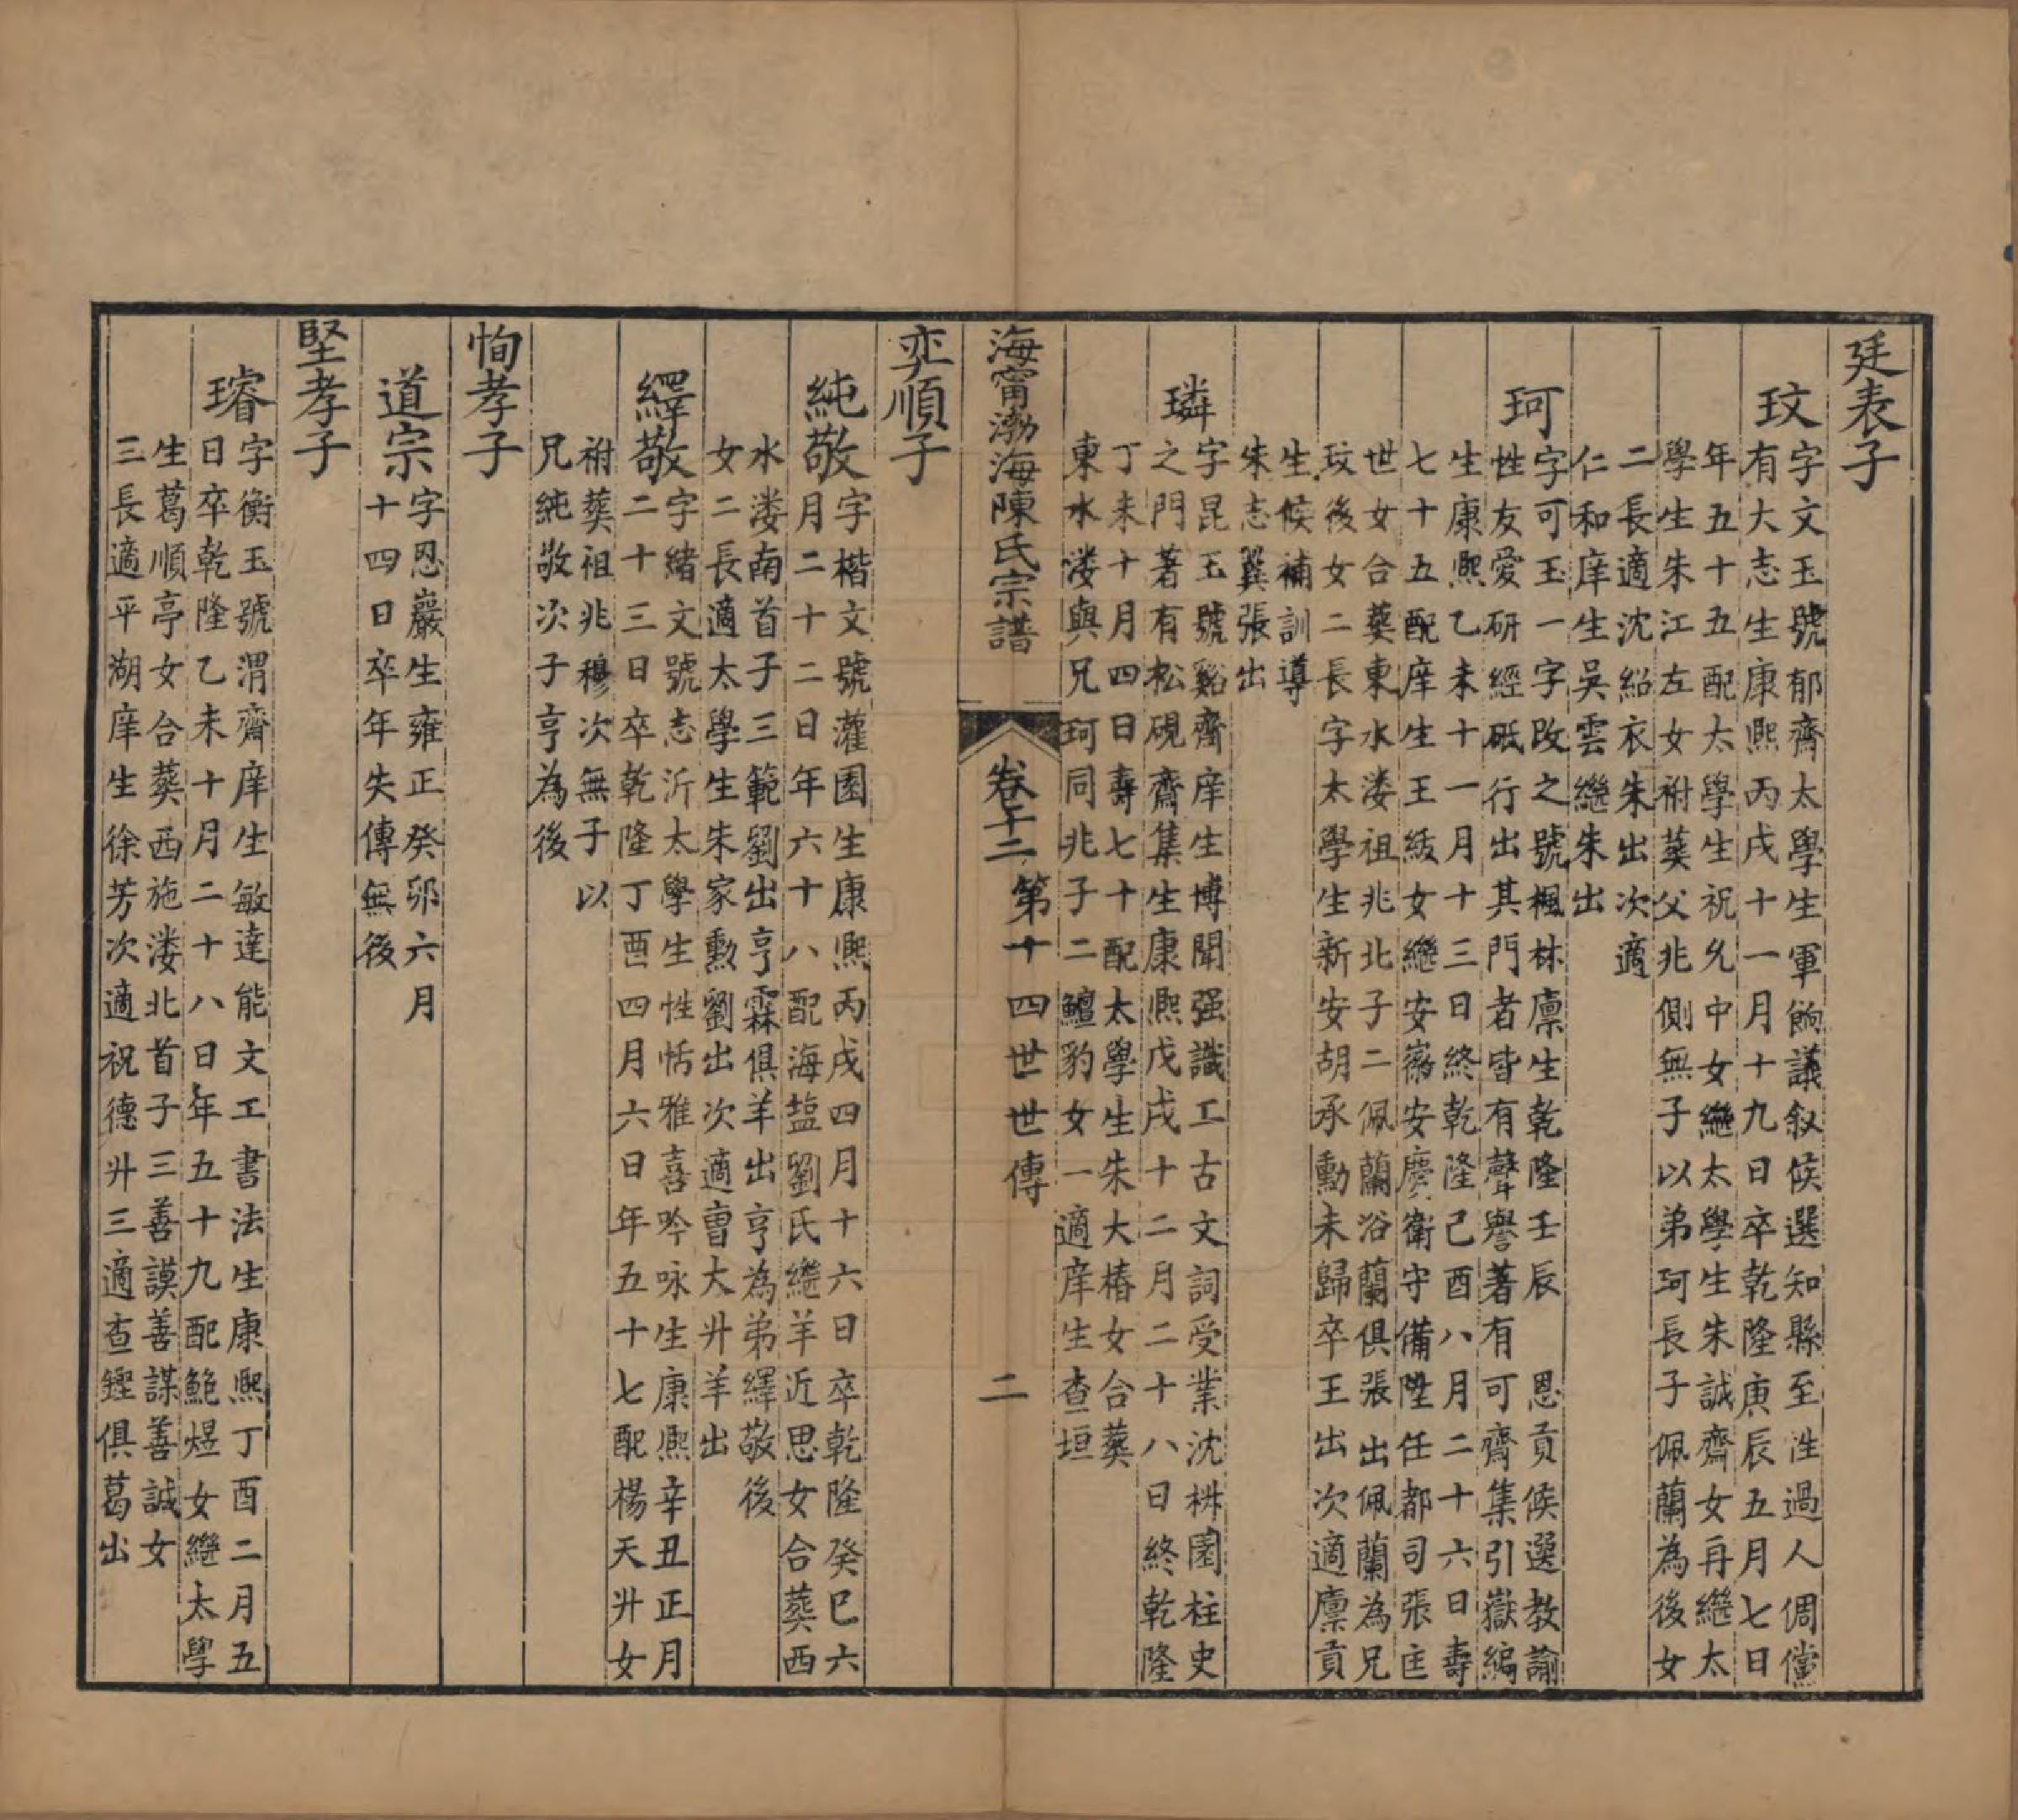 廷表子
玟
字文玉號郁齊太學生軍餉議叙候選知縣至性過人倜儻
有大志生康熙丙戌十一月十九日卒乾隆庚辰五月七日
年五十五配太學生祝允中女繼太學生朱誠齊女再繼太
學生朱江左女祔葬父兆側無子以弟珂長子佩蘭為後女
二長適沈紹衣朱出次適
仁和庠生吳雲繼朱出
珂
字可玉一字改之號楓林廪生乾隆壬辰 恩貢候選教諭
性友愛研經砥行出其門者皆有聲譽著有可齊集引嶽編
生康熙乙未十一月十三日終乾隆己酉八月二十六日壽
七十五配庠生王紱女繼安徽安慶衛守備陞任都司張匡
世女合葬東水溇祖兆北子二佩蘭浴蘭俱張出佩蘭為兄
玟後女二長字太學生新安胡承勳未歸卒王出次適廪貢
生候補訓導
朱志巽張出
璘
字昆玉號谿齊庠生博聞强識工古文詞受業沈栟園柱史
之門著有松硯齋集生康熙戊戌十二月二十八日終乾隆
丁未十月四日壽七十配太學生朱大椿女合葬
東水溇與兄珂同兆子二鱣豹女一適庠生查垣
海甯渤海陳氏宗譜
卷十二 第十四世世傳
二
奕順子
純敬
字楷文號灌園生康熙丙戌四月十六日卒乾隆癸巳六
月二十二日年六十八配海盐劉氏繼羊近思女合葬西
水溇南首子三範劉出亨霖俱羊出亨為弟繹敬後
女二長適太學生朱家勲劉出次適曺大升羊出
繹敬
字緒文號志沂太學生性恬雅喜吟咏生康熙辛丑正月
二十三日卒乾隆丁酉四月六日年五十七配楊天升女
祔葬祖兆穆次無子以
兄純敬次子亨為後
恂孝子
道宗
字恩巖生雍正癸卯六月
十四日卒年失傳無後
堅孝子
璿
字衡玉號渭齊庠生敏達能文工書法生康熙丁酉二月五
日卒乾隆乙未十月二十八日年五十九配鮑煜女繼太學
生葛順亭女合葬西施溇北首子三善謨善謀善誠女
三長適平湖庠生徐芳次適祝德升三適查鏗俱葛出